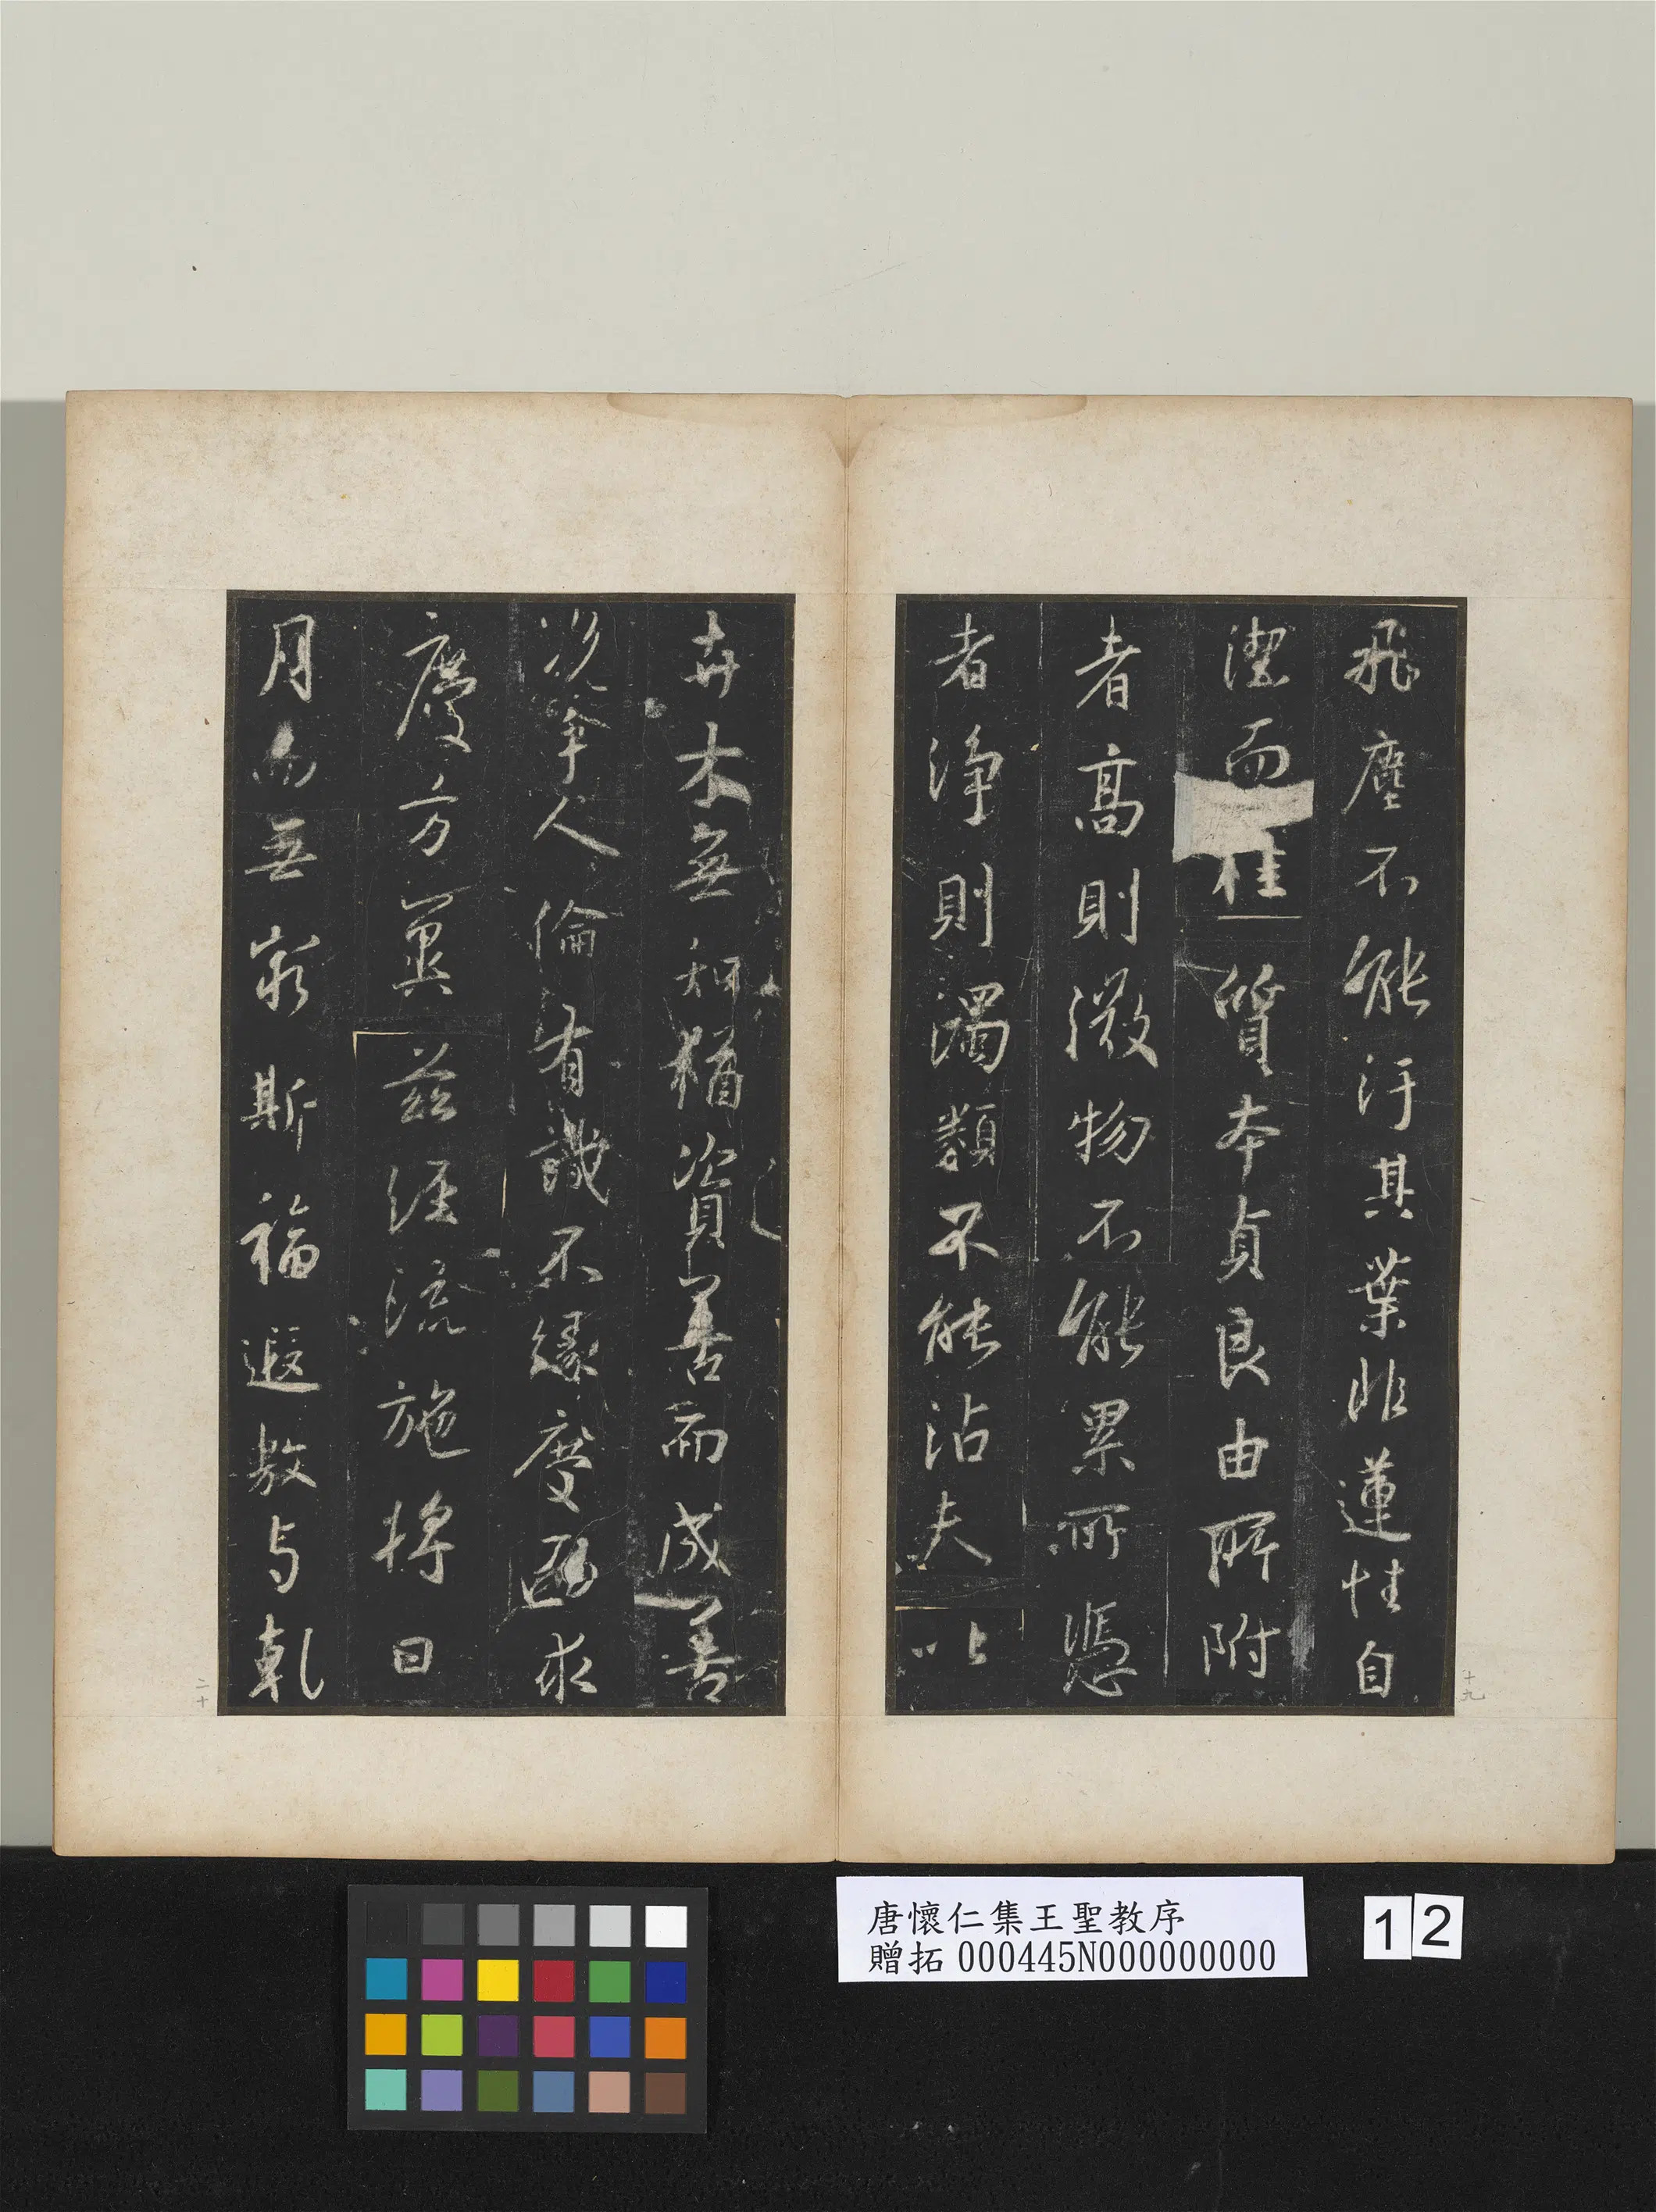 飛塵不能汙其葉非蓮性自
潔而桂質本貞良由所附
者高則微物不能累所憑
者淨則濁類不能沾夫以
十九
卉木無知猶資善而成善
況乎人倫有識不緣慶而求
慶方冀茲經流施將日
月而無窮斯福遐敷与乾
二十
唐懷仁集王聖教序
贈拓 000445N000000000
12